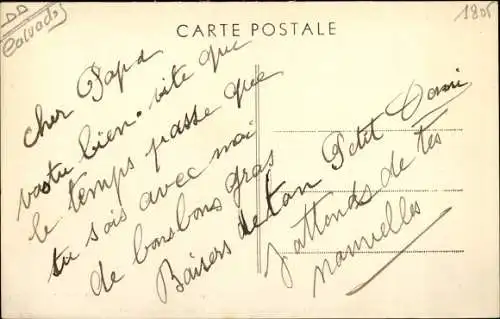 DD
Calvados
CARTE POSTALE
1805
cher Papa
vastu bien. vite que
le temps passe que
tu sois avec moi
de bonbons gras
Baisers de ton Petit Dani
J'attends de tes
nouvelles